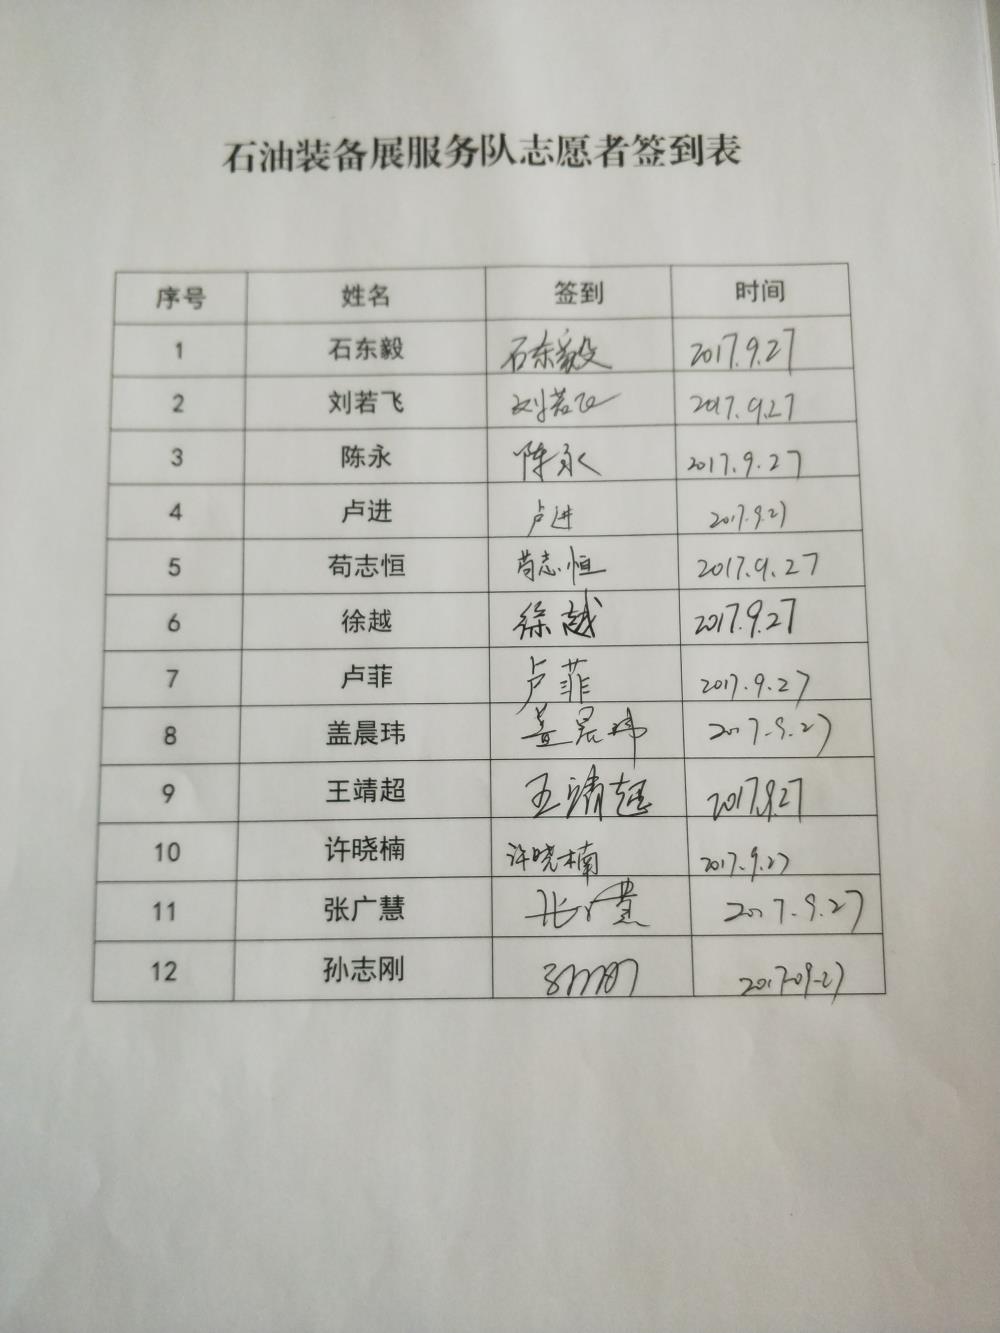 石油装备展服务队志愿者签到表
序号 姓名 签到 时间
1 石东毅 石东毅 2017.9.27
2 刘若飞 刘若飞 2017.9.27
3 陈永 陈永 2017.9.27
4 卢进 卢进 2017.9.27
5 苟志恒 苟志恒 2017.9.27
6 徐越 徐越 2017.9.27
7 卢菲 卢菲 2017.9.27
8 盖晨玮 盖晨玮 2017.9.27
9 王靖超 王靖超 2017.9.27
10 许晓楠 许晓楠 2017.9.27
11 张广慧 张广慧 2017.9.27
12 孙志刚 2017-09-27